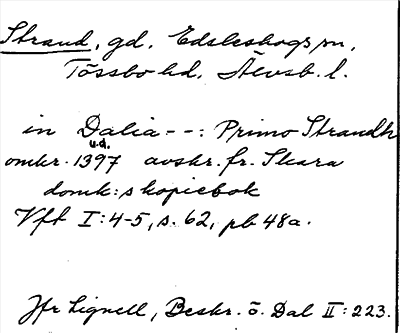 Strand, gd, Edsleskogs sn,
Tössbo hd, Älvsb. l.
in Dalia--: Primo Strandh
u.d.
omkr. 1397 avskr. fr. Skara
domk:s kopiebok
Vft I:4-5, s. 62, pb 48a.
Jfr Lignell, Beskr. ö. Dal II:223.